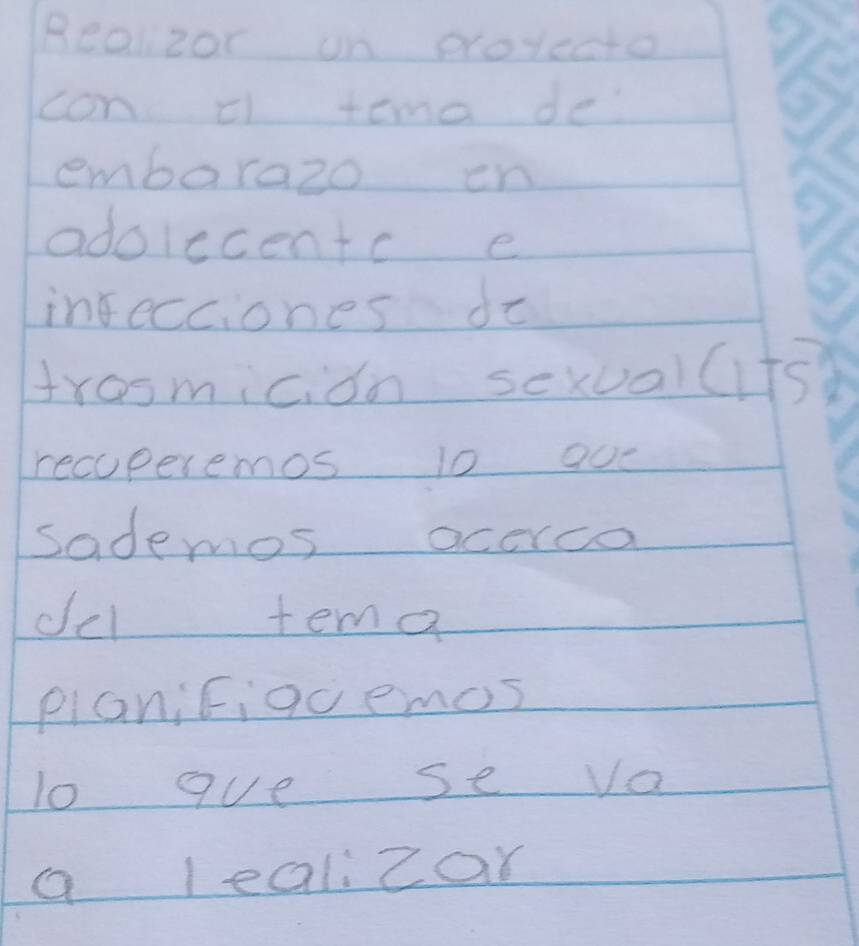 Realizar un proyecto
con el tema de
embarazo en
adolecente e
infecciones de
trasmición sexual (ITS)
recuperemos lo que
sademos acerca
del tema
planifiquemos
lo que se va
a realizar